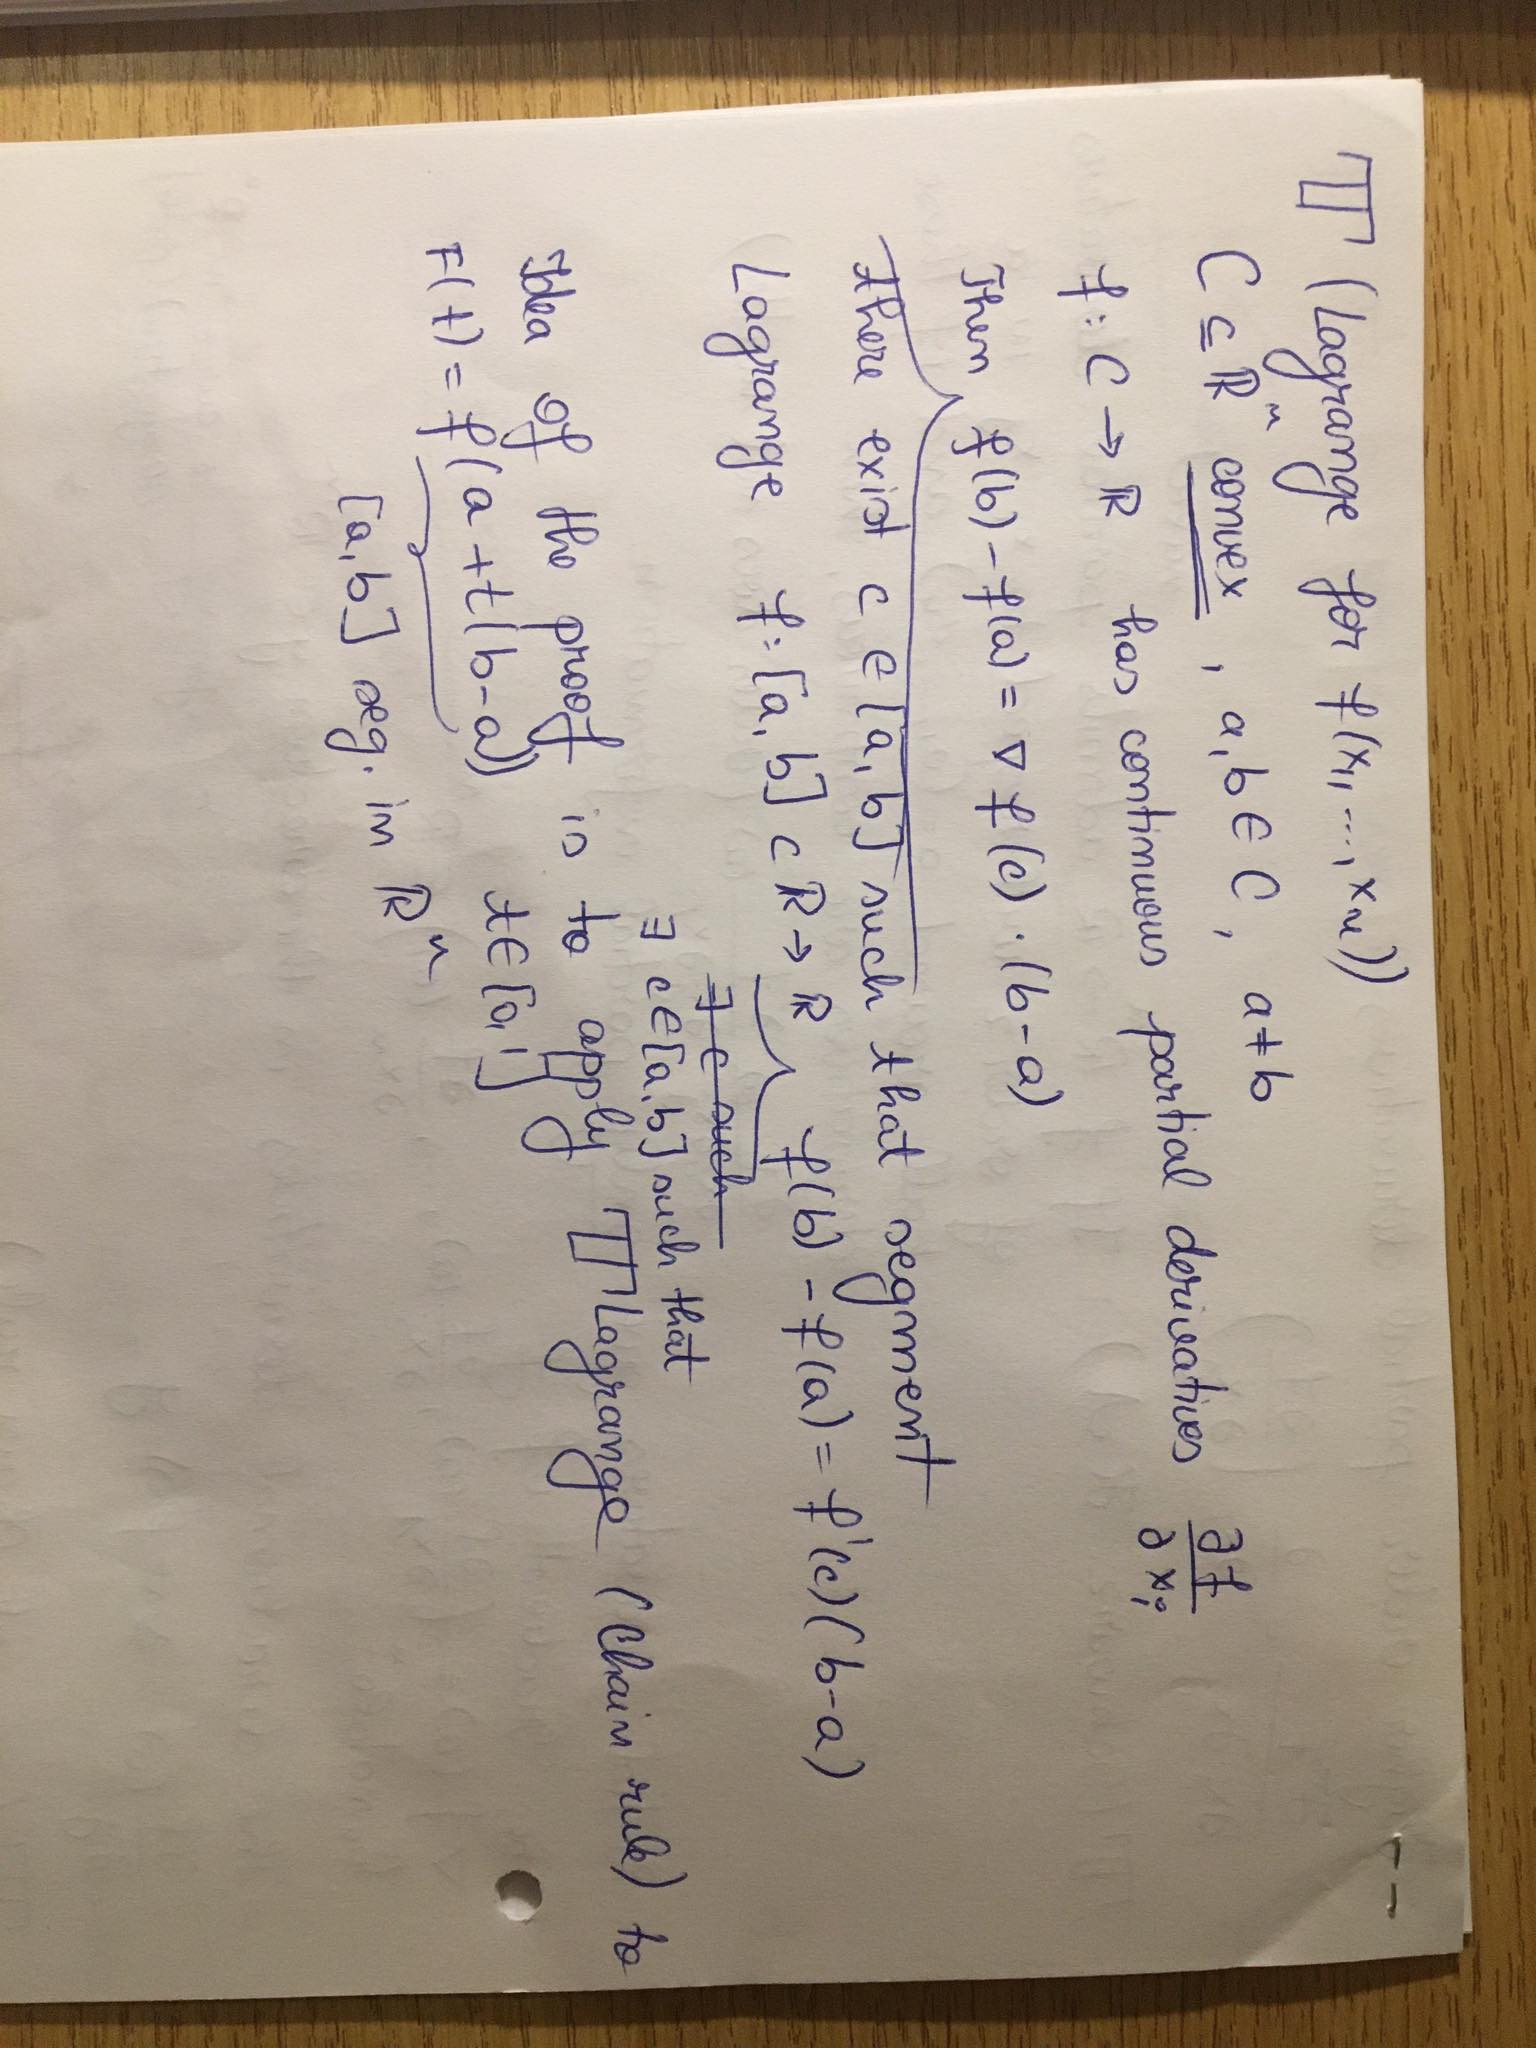 𝕋 (Lagrange for f(x₁, ..., xₙ))
C ⊆ ℝⁿ convex, a, b ∈ C, a ≠ b
f: C → ℝ has continuous partial derivatives ∂f/∂xᵢ
Then f(b) - f(a) = ∇f(c) · (b-a)
there exist c ∈ [a, b] such that segment
Lagrange f: [a, b] ⊂ ℝ → ℝ f(b) - f(a) = f'(c)(b-a)
∃ c such
∃ c ∈ [a, b] such that
Idea of the proof is to apply 𝕋 Lagrange (Chain rule) to
F(t) = f(a + t(b-a)) t ∈ [0, 1]
[a, b] seg. in ℝⁿ